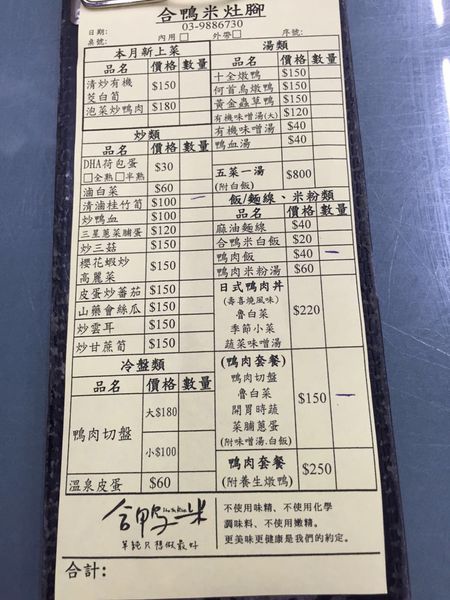 合鴨米灶腳
03-9886730
日期:
桌號: 內用□ 外帶□ 序號:
本月新上菜
品名 價格 數量
清炒有機茭白筍 $150
泡菜炒鴨肉 $180
炒類
品名 價格 數量
DHA荷包蛋 □全熟□半熟 $30
滷白菜 $60
清滷桂竹筍 $100
炒鴨血 $100
三星蔥菜脯蛋 $120
炒三菇 $150
櫻花蝦炒高麗菜 $150
皮蛋炒蕃茄 $150
山藥會絲瓜 $150
炒雲耳 $150
炒甘蔗筍 $150
冷盤類
品名 價格 數量
鴨肉切盤 大$180
小$100
溫泉皮蛋 $60
湯類
品名 價格 數量
十全燉鴨 $150
何首烏燉鴨 $150
黃金蟲草鴨 $150
有機味噌湯(大) $120
有機味噌湯 $40
鴨血湯 $40
五菜一湯 (附白飯) $800
飯/麵線、米粉類
品名 價格 數量
麻油麵線 $40
合鴨米白飯 $20
鴨肉飯 $40
鴨肉米粉湯 $60
日式鴨肉丼
(壽喜燒風味)
魯白菜
季節小菜
蔬菜味噌湯
$220
(鴨肉套餐)
鴨肉切盤
魯白菜
開胃時蔬
菜脯蔥蛋
(附味噌湯.白飯)
$150
鴨肉套餐 (附養生燉鴨) $250
合鴨米
單純只想做最好
不使用味精、不使用化學
調味料、不使用嫩精。
更美味更健康是我們的約定。
合計: